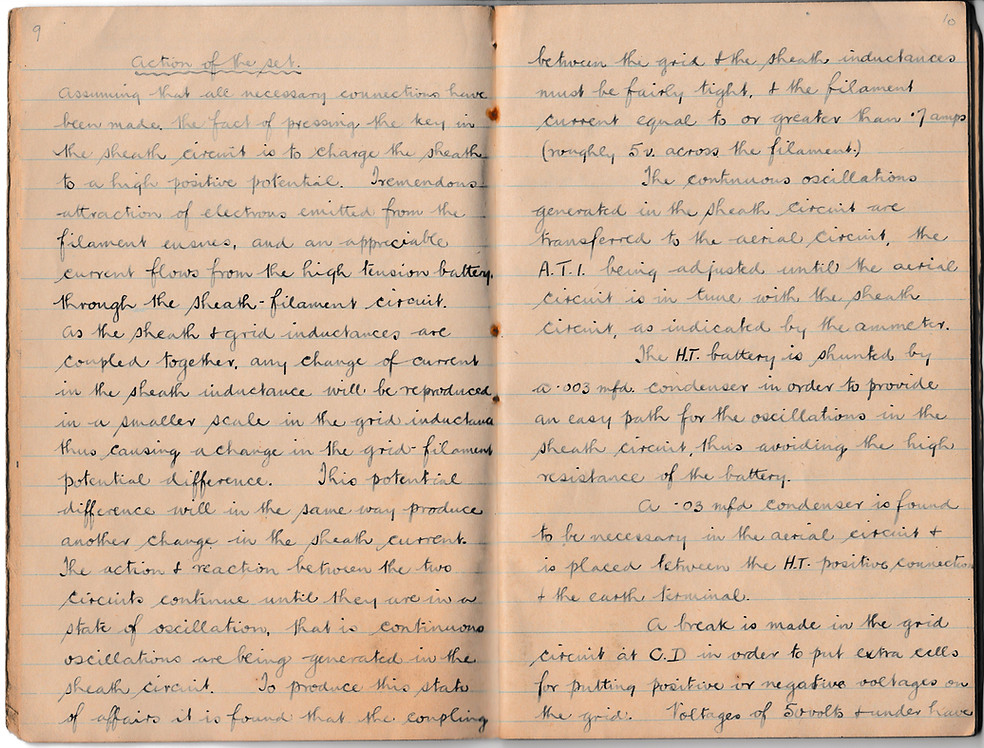 9
Action of the set.
Assuming that all necessary connections have
been made. the fact of pressing the key in
the sheath circuit is to charge the sheath
to a high positive potential. Tremendous
attraction of electrons emitted from the
filament ensues, and an appreciable
current flows from the high tension battery.
through the sheath-filament circuit.
As the sheath & grid inductances are
coupled together, any change of current
in the sheath inductance will be reproduced
in a smaller scale in the grid inductance
thus causing a change in the grid-filament
potential difference. This potential
difference will in the same way produce
another change in the sheath current.
The action & reaction between the two
circuits continue until they are in a
state of oscillation, that is continuous
oscillations are being generated in the
sheath circuit. To produce this state
of affairs it is found that the coupling
10
between the grid & the sheath inductances
must be fairly tight, & the filament
current equal to or greater than .7 amps
(roughly 5v. across the filament.)
The continuous oscillations
generated in the sheath circuit are
transferred to the aerial circuit, the
A.T.I. being adjusted until the aerial
circuit is in tune with the sheath
circuit, as indicated by the ammeter.
The H.T. battery is shunted by
a .003 mfd. condenser in order to provide
an easy path for the oscillations in the
sheath circuit, thus avoiding the high
resistance of the battery.
A .03 mfd condenser is found
to be necessary in the aerial circuit &
is placed between the H.T. positive connection
& the earth terminal.
A break is made in the grid
circuit at C.D in order to put extra cells
for putting positive or negative voltages on
the grid. Voltages of 50volts & under have